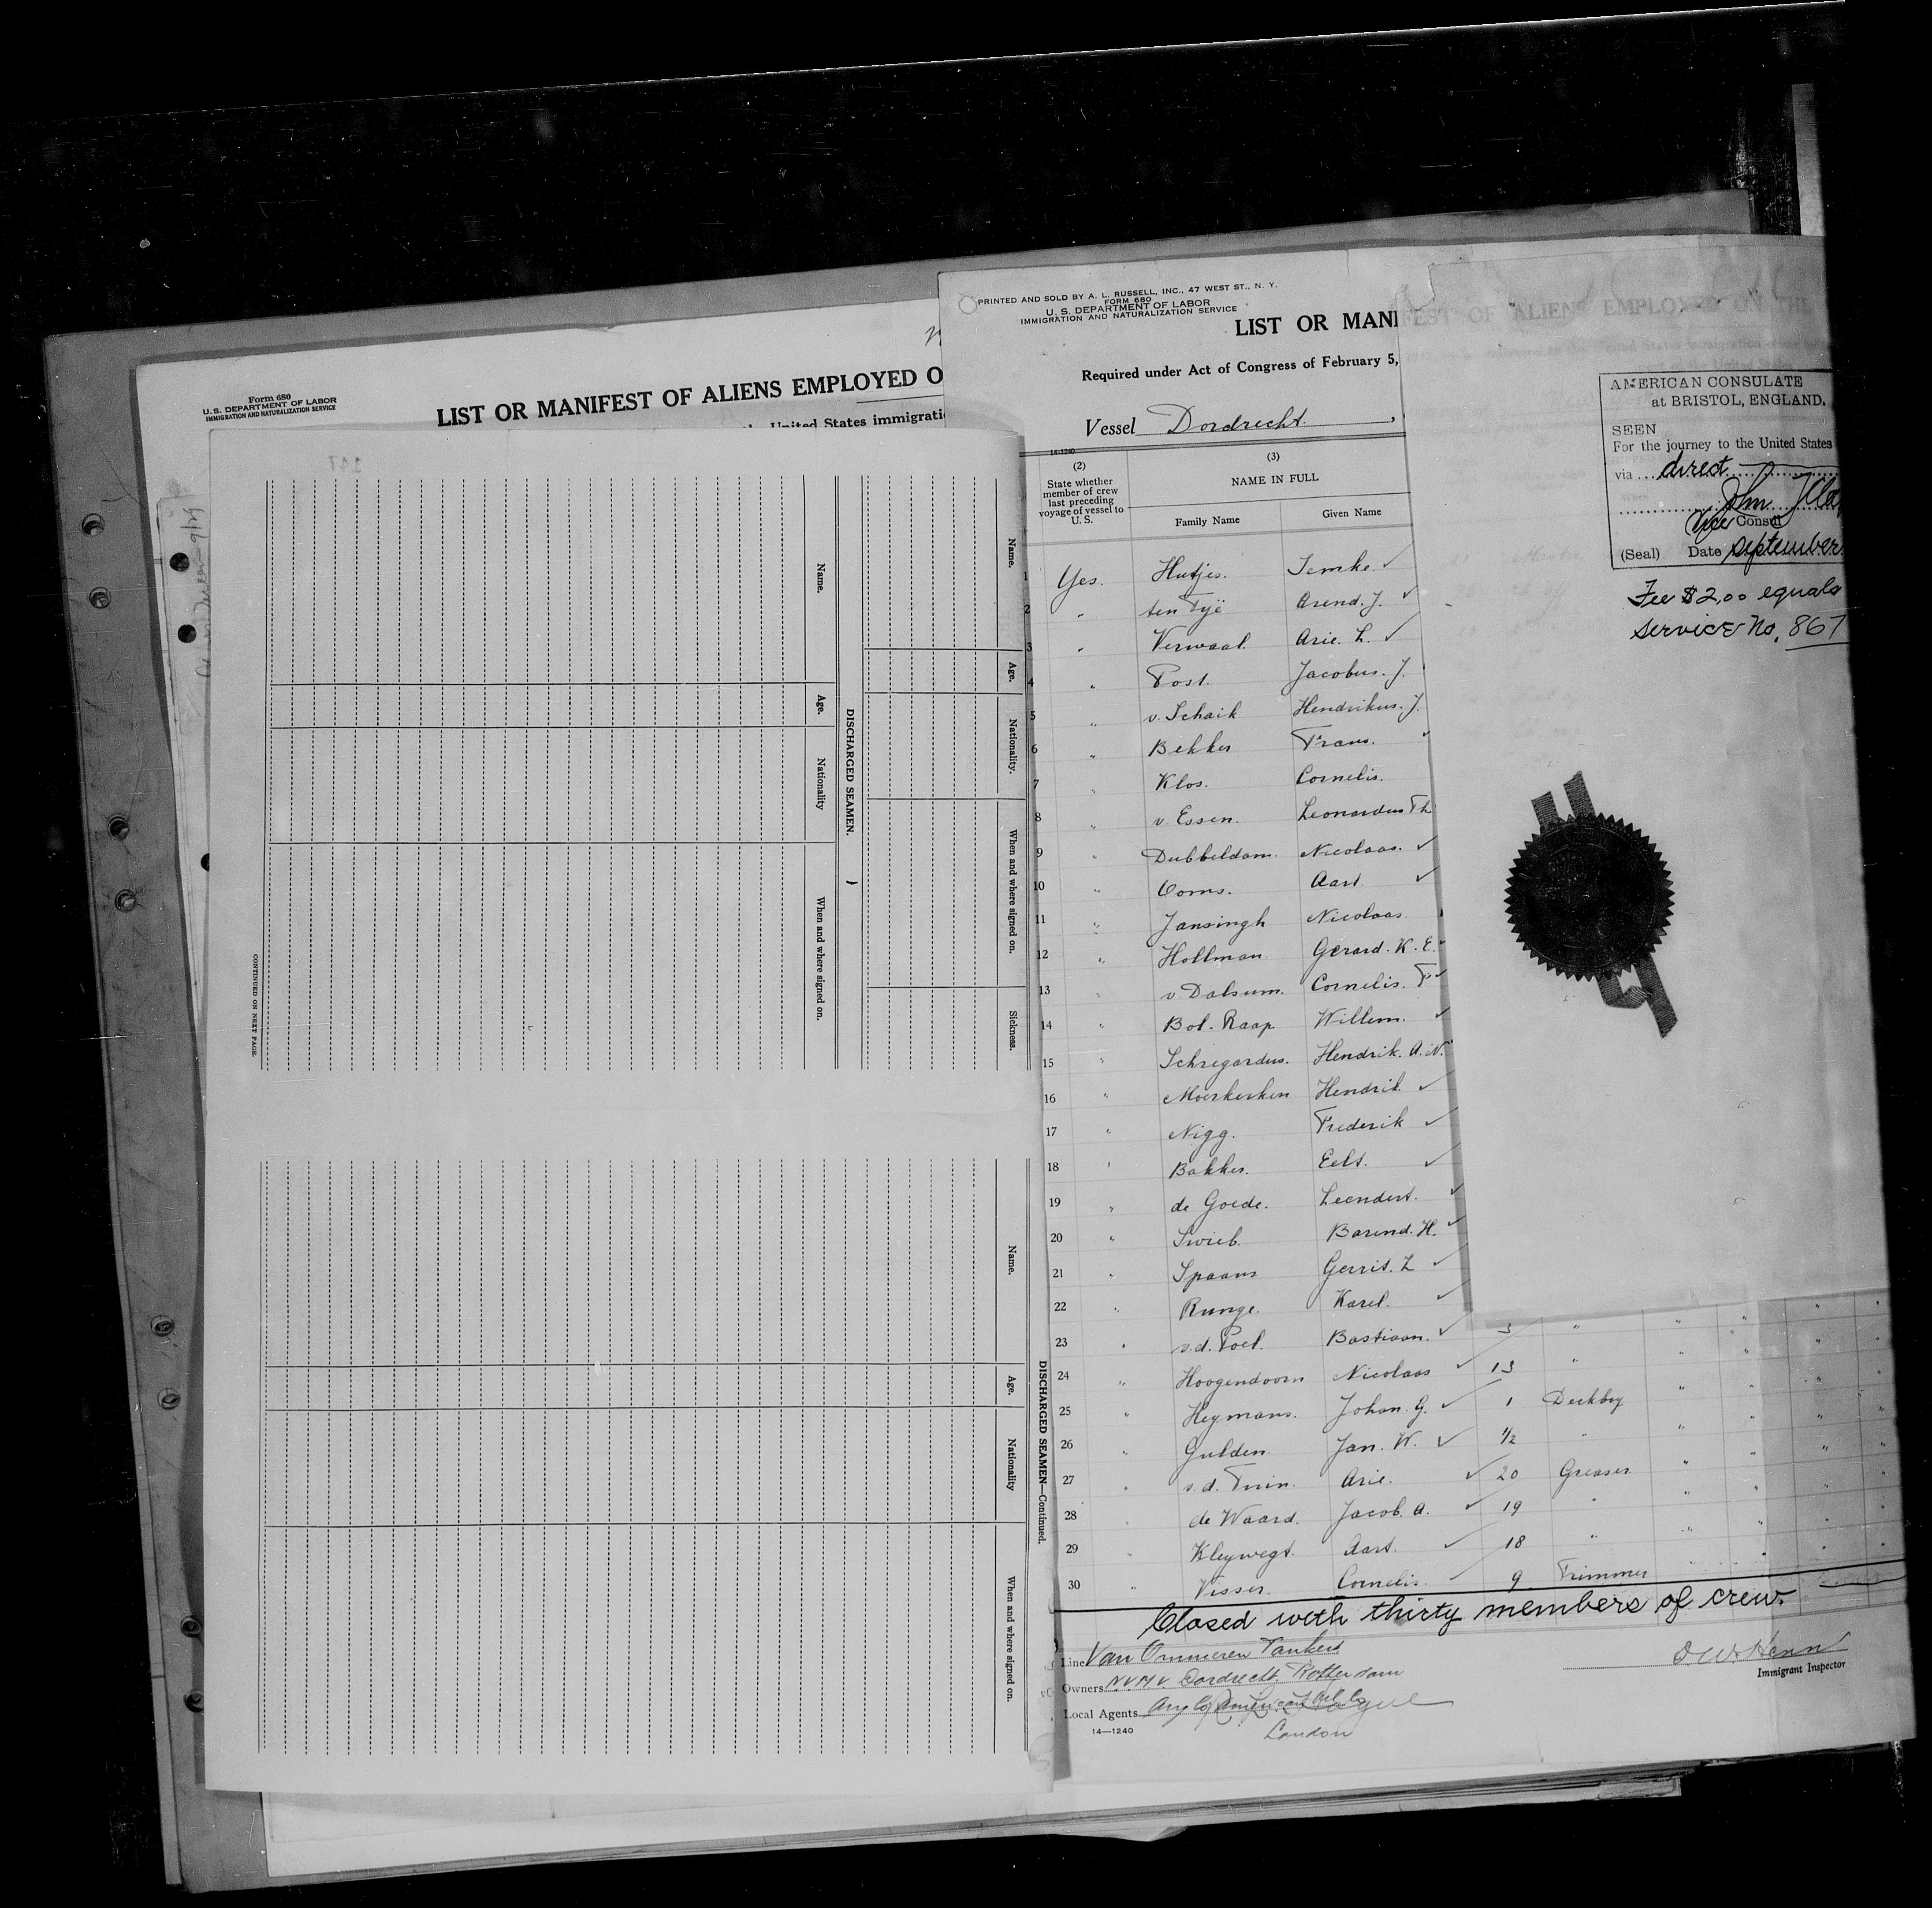 Form 680
U. S. DEPARTMENT OF LABOR
IMMIGRATION AND NATURALIZATION SERVICE
LIST OR MANIFEST OF ALIENS EMPLOYED O
United States immigrati
147
Name.
Age.
Nationality.
When and where signed on.
Sickness.
DISCHARGED SEAMEN.
Name.
Age.
Nationality
When and where signed on.
CONTINUED ON NEXT PAGE.
DISCHARGED SEAMEN—Continued.
Name.
Age.
Nationality
When and where signed on.
PRINTED AND SOLD BY A. L. RUSSELL, INC., 47 WEST ST., N. Y.
FORM 680
U. S. DEPARTMENT OF LABOR
IMMIGRATION AND NATURALIZATION SERVICE
LIST OR MANI
FEST OF ALIENS EMPLOYED ON THE
Required under Act of Congress of February 5,
Vessel Dordrecht.
14-1240
(2)
State whether
member of crew
last preceding
voyage of vessel to
U. S.
(3)
NAME IN FULL
Family Name
Given Name
1 Yes. Hutjes. Temke.
2 " ten Tyë Arend. J.
3 " Verwaal. Arie. L.
4 " Post. Jacobus. J.
5 " v. Schaik Hendrikus. J.
6 " Bekker Frans.
7 " Klos. Cornelis.
8 " v. Essen. Leonardus Th
9 " Dubbeldam. Nicolaas.
10 " Ooms. Aart.
11 " Jansingh Nicolaas
12 " Hollman Gerard. K. E.
13 " v. Dalsum. Cornelis. P
14 " Bol. Raap. Willem.
15 " Schregardus. Hendrik. A. W.
16 " Moerkerken Hendrik.
17 " Nigg. Frederik
18 " Bakker. Eelt.
19 " de Goede. Leendert.
20 " Swieb. Barend. H.
21 " Spaans Gerrit. L
22 " Runge. Karel.
23 " v.d. Poel. Bastiaan. 3 "
24 " Hoogendoorn Nicolaas 13 "
25 " Heymans. Johan. G. 1 Deckboy "
26 " Gulden. Jan. W. 1/2 " "
27 " v. d. Tuin. Arie. 20 Greaser "
28 " de Waard. Jacob. A. 19 " "
29 " Kleywegt. Aart. 18 " "
30 " Visser. Cornelis. 9 Trimmer "
Closed with thirty members of crew.
Line Van Ommeren Tankers
Owners N.V.M.V. Dordrecht. Rotterdam
Local Agents Anglo American Oil Co
London
14—1240
Immigrant Inspector
AMERICAN CONSULATE
at BRISTOL, ENGLAND.
SEEN
For the journey to the United States
via direct
John J
Vice Consul
(Seal) Date September
Fee $2,00 equals
Service No. 867